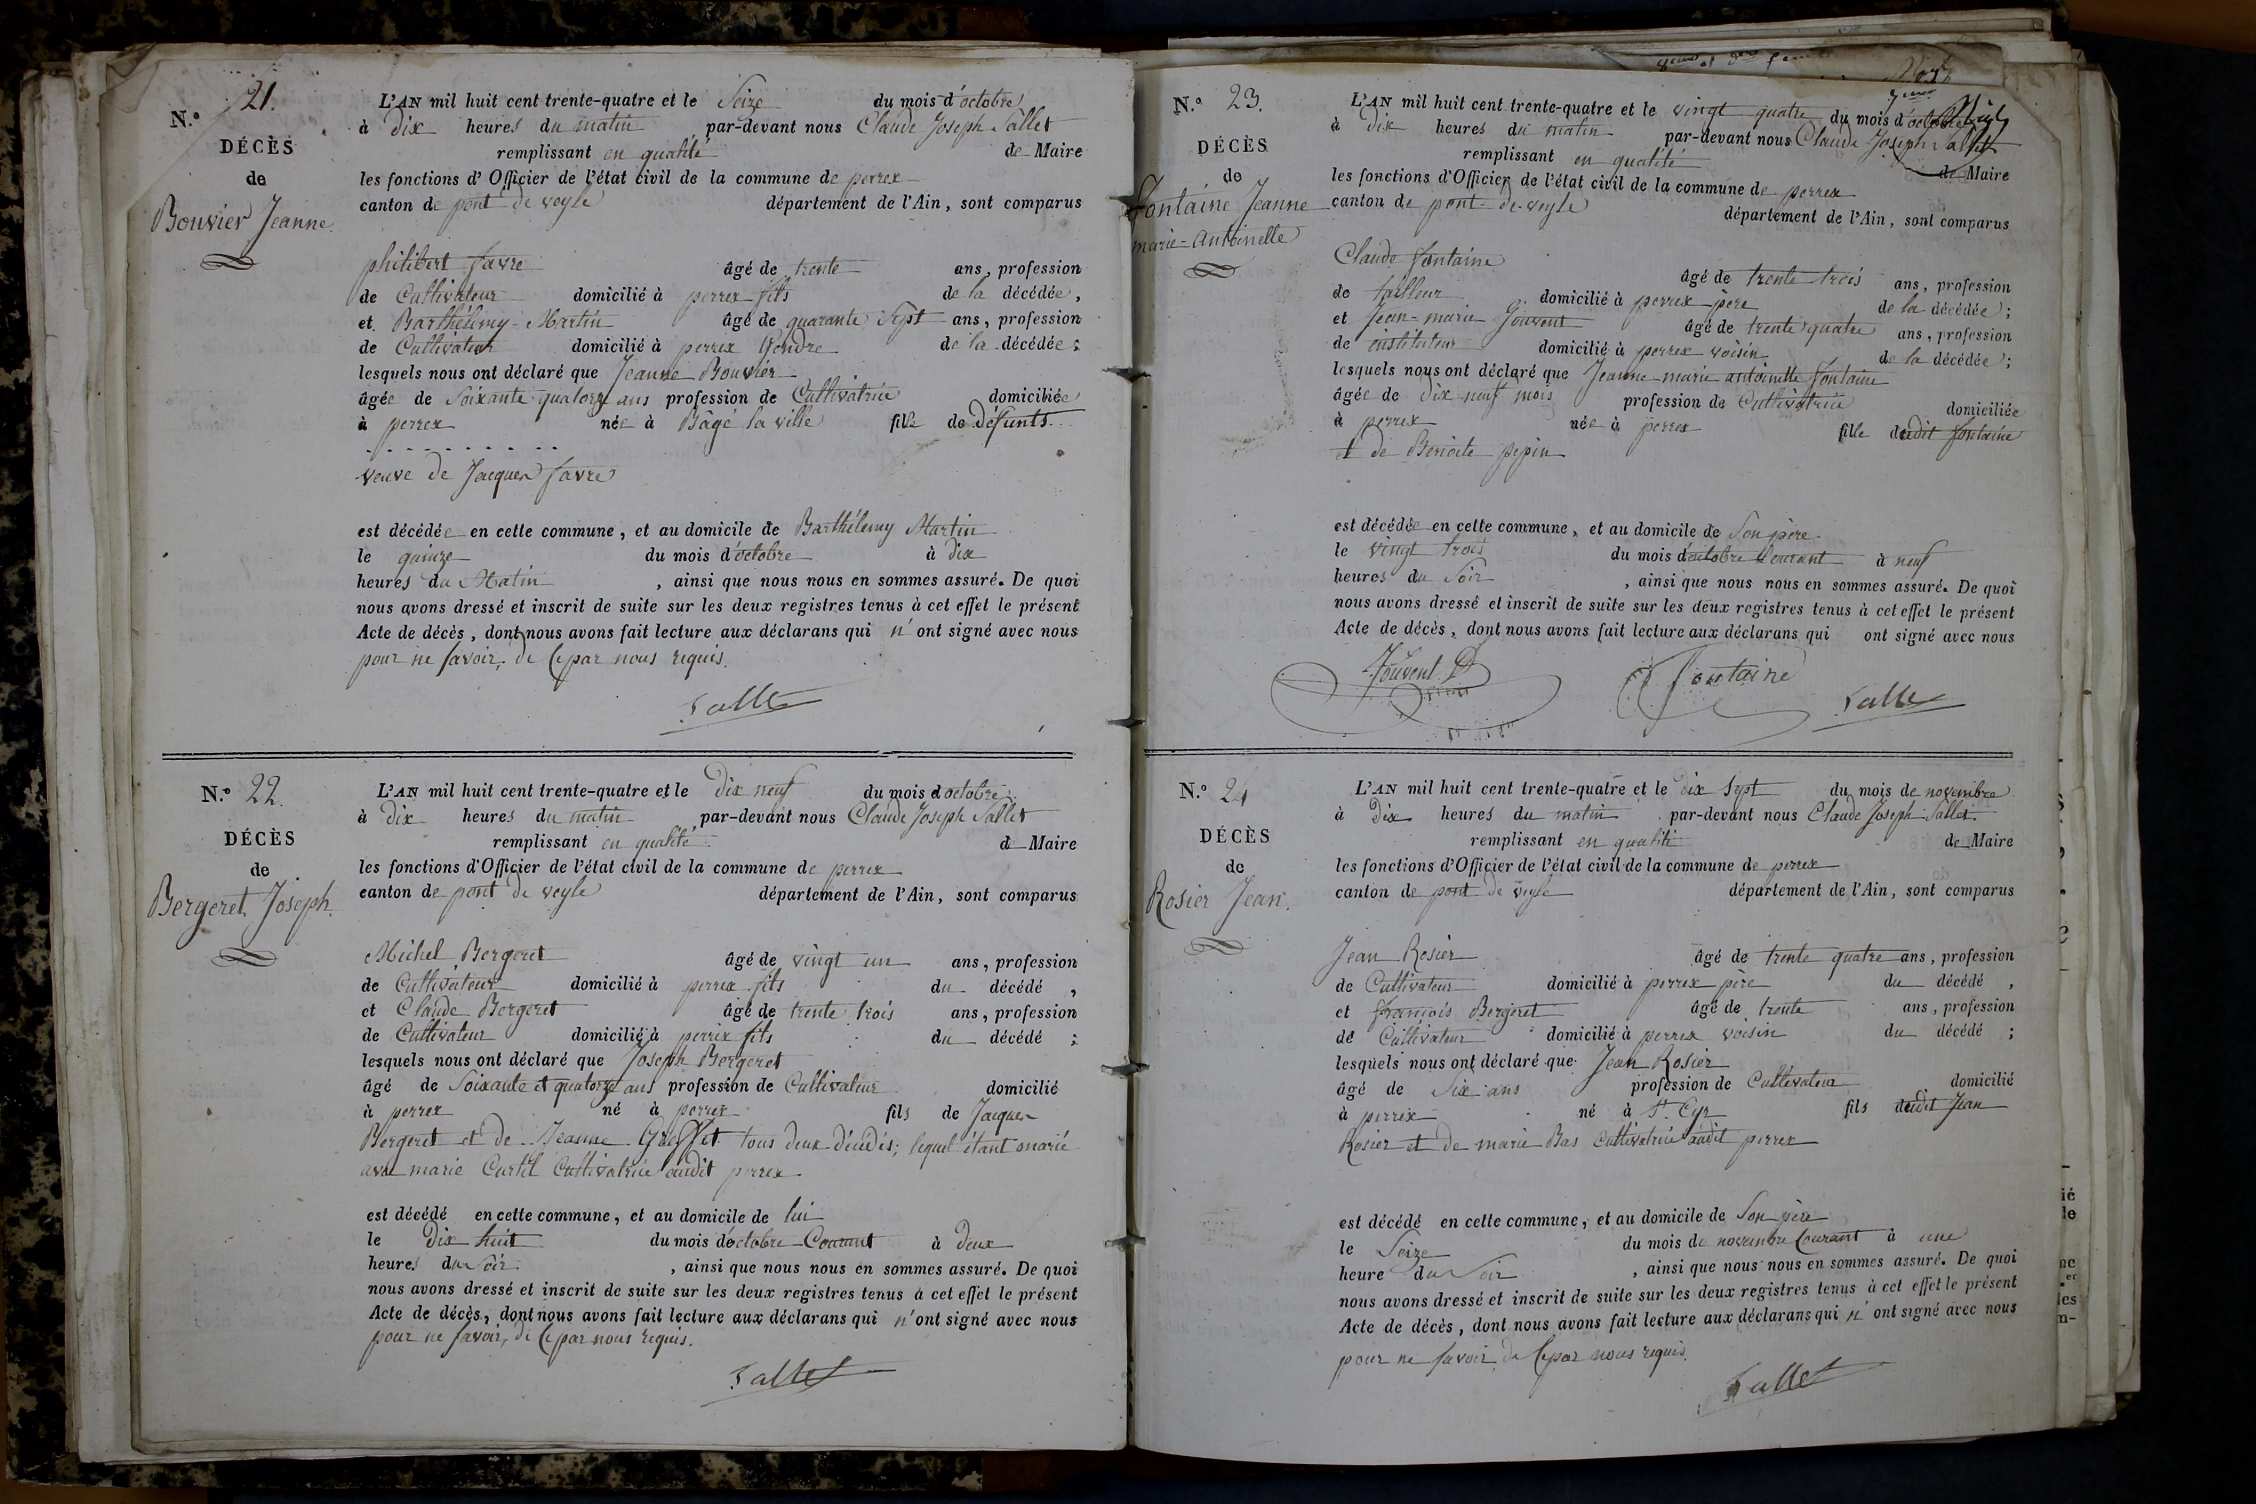 N.º 21.
DÉCÈS
de
Bouvier Jeanne.
L'AN mil huit cent trente-quatre et le Seize du mois d'octobre
à dix heures du matin par-devant nous Claude Joseph Sallet
remplissant en qualité de Maire
les fonctions d'Officier de l'état civil de la commune de perrex
canton de pont de veyle département de l'Ain, sont comparus
philibert favre âgé de trente ans, profession
de Cultivateur domicilié à perrex fils de la décédée,
et Barthélemy Martin âgé de quarante Sept ans, profession
de Cultivateur domicilié à perrex Gendre de la décédée;
lesquels nous ont déclaré que Jeanne Bouvier
âgée de Soixante quatorze ans profession de Cultivatrice domiciliée
à perrex née à Bâgé la ville fille de Défunts
. . . . . . . . . .
veuve de Jacques favre
est décédée en cette commune, et au domicile de Barthélemy Martin
le quinze du mois d'octobre à dix
heures du Matin, ainsi que nous nous en sommes assuré. De quoi
nous avons dressé et inscrit de suite sur les deux registres tenus à cet effet le présent
Acte de décès, dont nous avons fait lecture aux déclarans qui n'ont signé avec nous
pour ne savoir, de Ce par nous requis.
Sallet
N.º 22.
DÉCÈS
de
Bergeret Joseph.
L'AN mil huit cent trente-quatre et le Dix neuf du mois d octobre
à dix heures du matin par-devant nous Claude Joseph Sallet
remplissant en qualité d Maire
les fonctions d'Officier de l'état civil de la commune de perrex
canton de pont de veyle département de l'Ain, sont comparus
Michel Bergeret âgé de vingt un ans, profession
de Cultivateur domicilié à perrex fils du décédé,
et Claude Bergeret âgé de trente trois ans, profession
de Cultivateur domicilié à perrex fils du décédé;
lesquels nous ont déclaré que Joseph Bergeret
âgé de Soixante et quatorze ans profession de Cultivateur domicilié
à perrex né à perrex fils de Jacques
Bergeret et de Jeanne Greffet tous deux décédés; lequel étant marié
avec marie Curtil Cultivatrice audit perrex
est décédé en cette commune, et au domicile de lui
le Dix huit du mois d'octobre Courant à deux
heures du Soir, ainsi que nous nous en sommes assuré. De quoi
nous avons dressé et inscrit de suite sur les deux registres tenus à cet effet le présent
Acte de décès, dont nous avons fait lecture aux déclarans qui n'ont signé avec nous
pour ne savoir, de Ce par nous requis.
Sallet
N.º 23.
DÉCÈS
de
Fontaine Jeanne
marie-antoinette
L'AN mil huit cent trente-quatre et le vingt quatre du mois d'octobre
à dix heures du matin par-devant nous Claude Joseph Sallet
remplissant en qualité de Maire
les fonctions d'Officier de l'état civil de la commune de perrex
canton de pont-de-veyle département de l'Ain, sont comparus
Claude fontaine âgé de trente trois ans, profession
de tailleur domicilié à perrex père de la décédée;
et Jean-marie Jouvent âgé de trente quatre ans, profession
de instituteur domicilié à perrex voisin de la décédée;
lesquels nous ont déclaré que Jeanne-marie antoinette fontaine
âgée de dix neuf mois profession de Cultivatrice domiciliée
à perrex née à perrex fille dudit fontaine
et de Benoite pepin
est décédée en cette commune, et au domicile de Son père
le vingt trois du mois d'octobre Courant à neuf
heures du Soir, ainsi que nous nous en sommes assuré. De quoi
nous avons dressé et inscrit de suite sur les deux registres tenus à cet effet le présent
Acte de décès, dont nous avons fait lecture aux déclarans qui ont signé avec nous
Jouvent Fontaine Sallet
N.º 24
DÉCÈS
de
Rosier Jean.
L'AN mil huit cent trente-quatre et le dix Sept du mois de novembre
à Dix heures du matin par-devant nous Claude Joseph Sallet.
remplissant en qualité de Maire
les fonctions d'Officier de l'état civil de la commune de perrex
canton de pont de veyle département de l'Ain, sont comparus
Jean Rosier âgé de trente quatre ans, profession
de Cultivateur domicilié à perrex père du décédé,
et francois Bergeret âgé de trente ans, profession
de Cultivateur domicilié à perrex voisin du décédé;
lesquels nous ont déclaré que Jean Rosier
âgé de Six ans profession de Cultivateur domicilié
à perrex né à St. Cyr fils dudit Jean
Rosier et de marie Bas Cultivatrice audit perrex
est décédé en cette commune, et au domicile de Son père
le Seize du mois de novembre Courant à une
heure du Soir, ainsi que nous nous en sommes assuré. De quoi
nous avons dressé et inscrit de suite sur les deux registres tenus à cet effet le présent
Acte de décès, dont nous avons fait lecture aux déclarans qui n'ont signé avec nous
pour ne savoir de Ce par nous requis.
Sallet